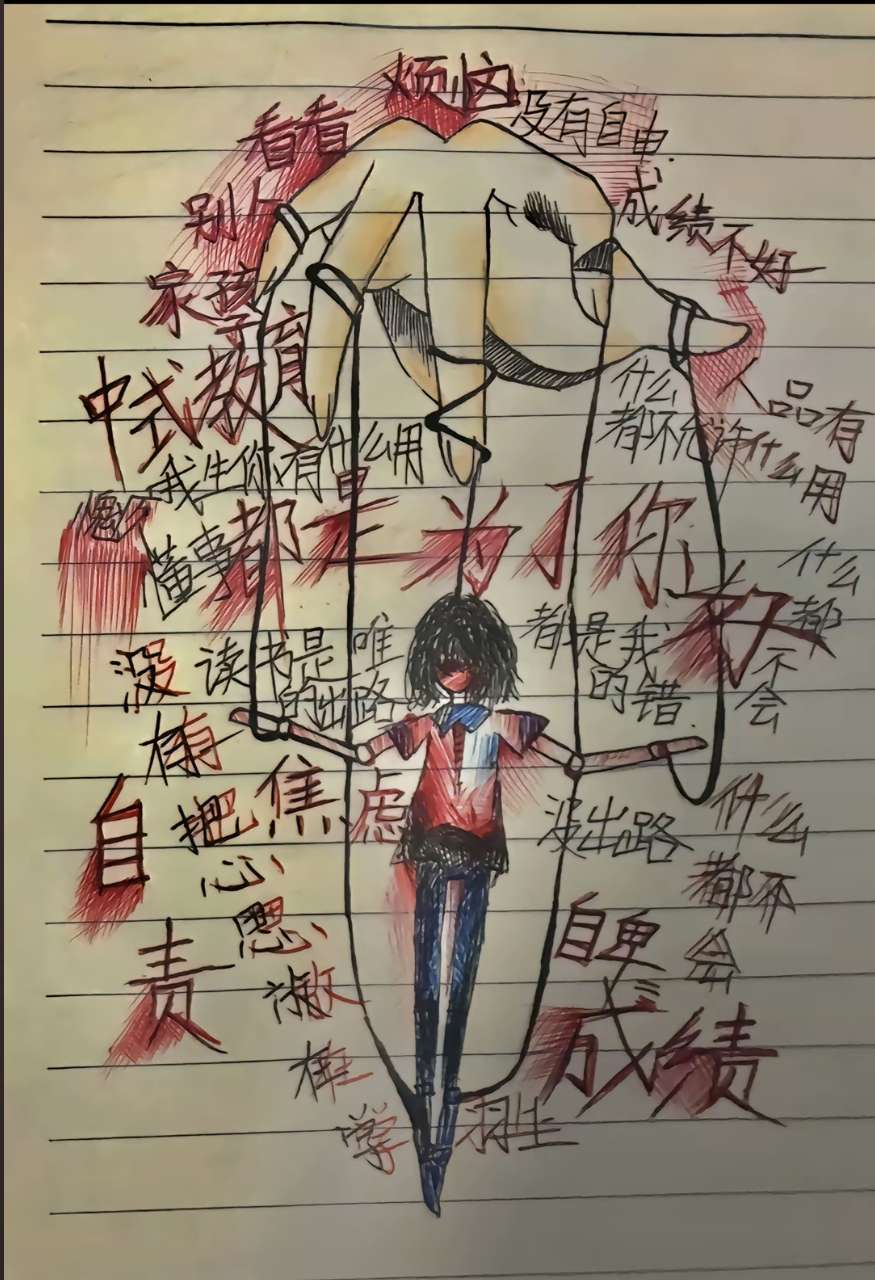 烦恼
没有自由
看看
别人
家孩子
成绩不好
中式教育
什么
都不允许
品有
什么用
我生你有什么用
懂事
都是为了你好
什么
都
不
会
没
读书是唯一
的出路
都是我
的错
自
责
把
心
思
放
焦虑
没出路
什么
都不
会
自卑
成绩
学